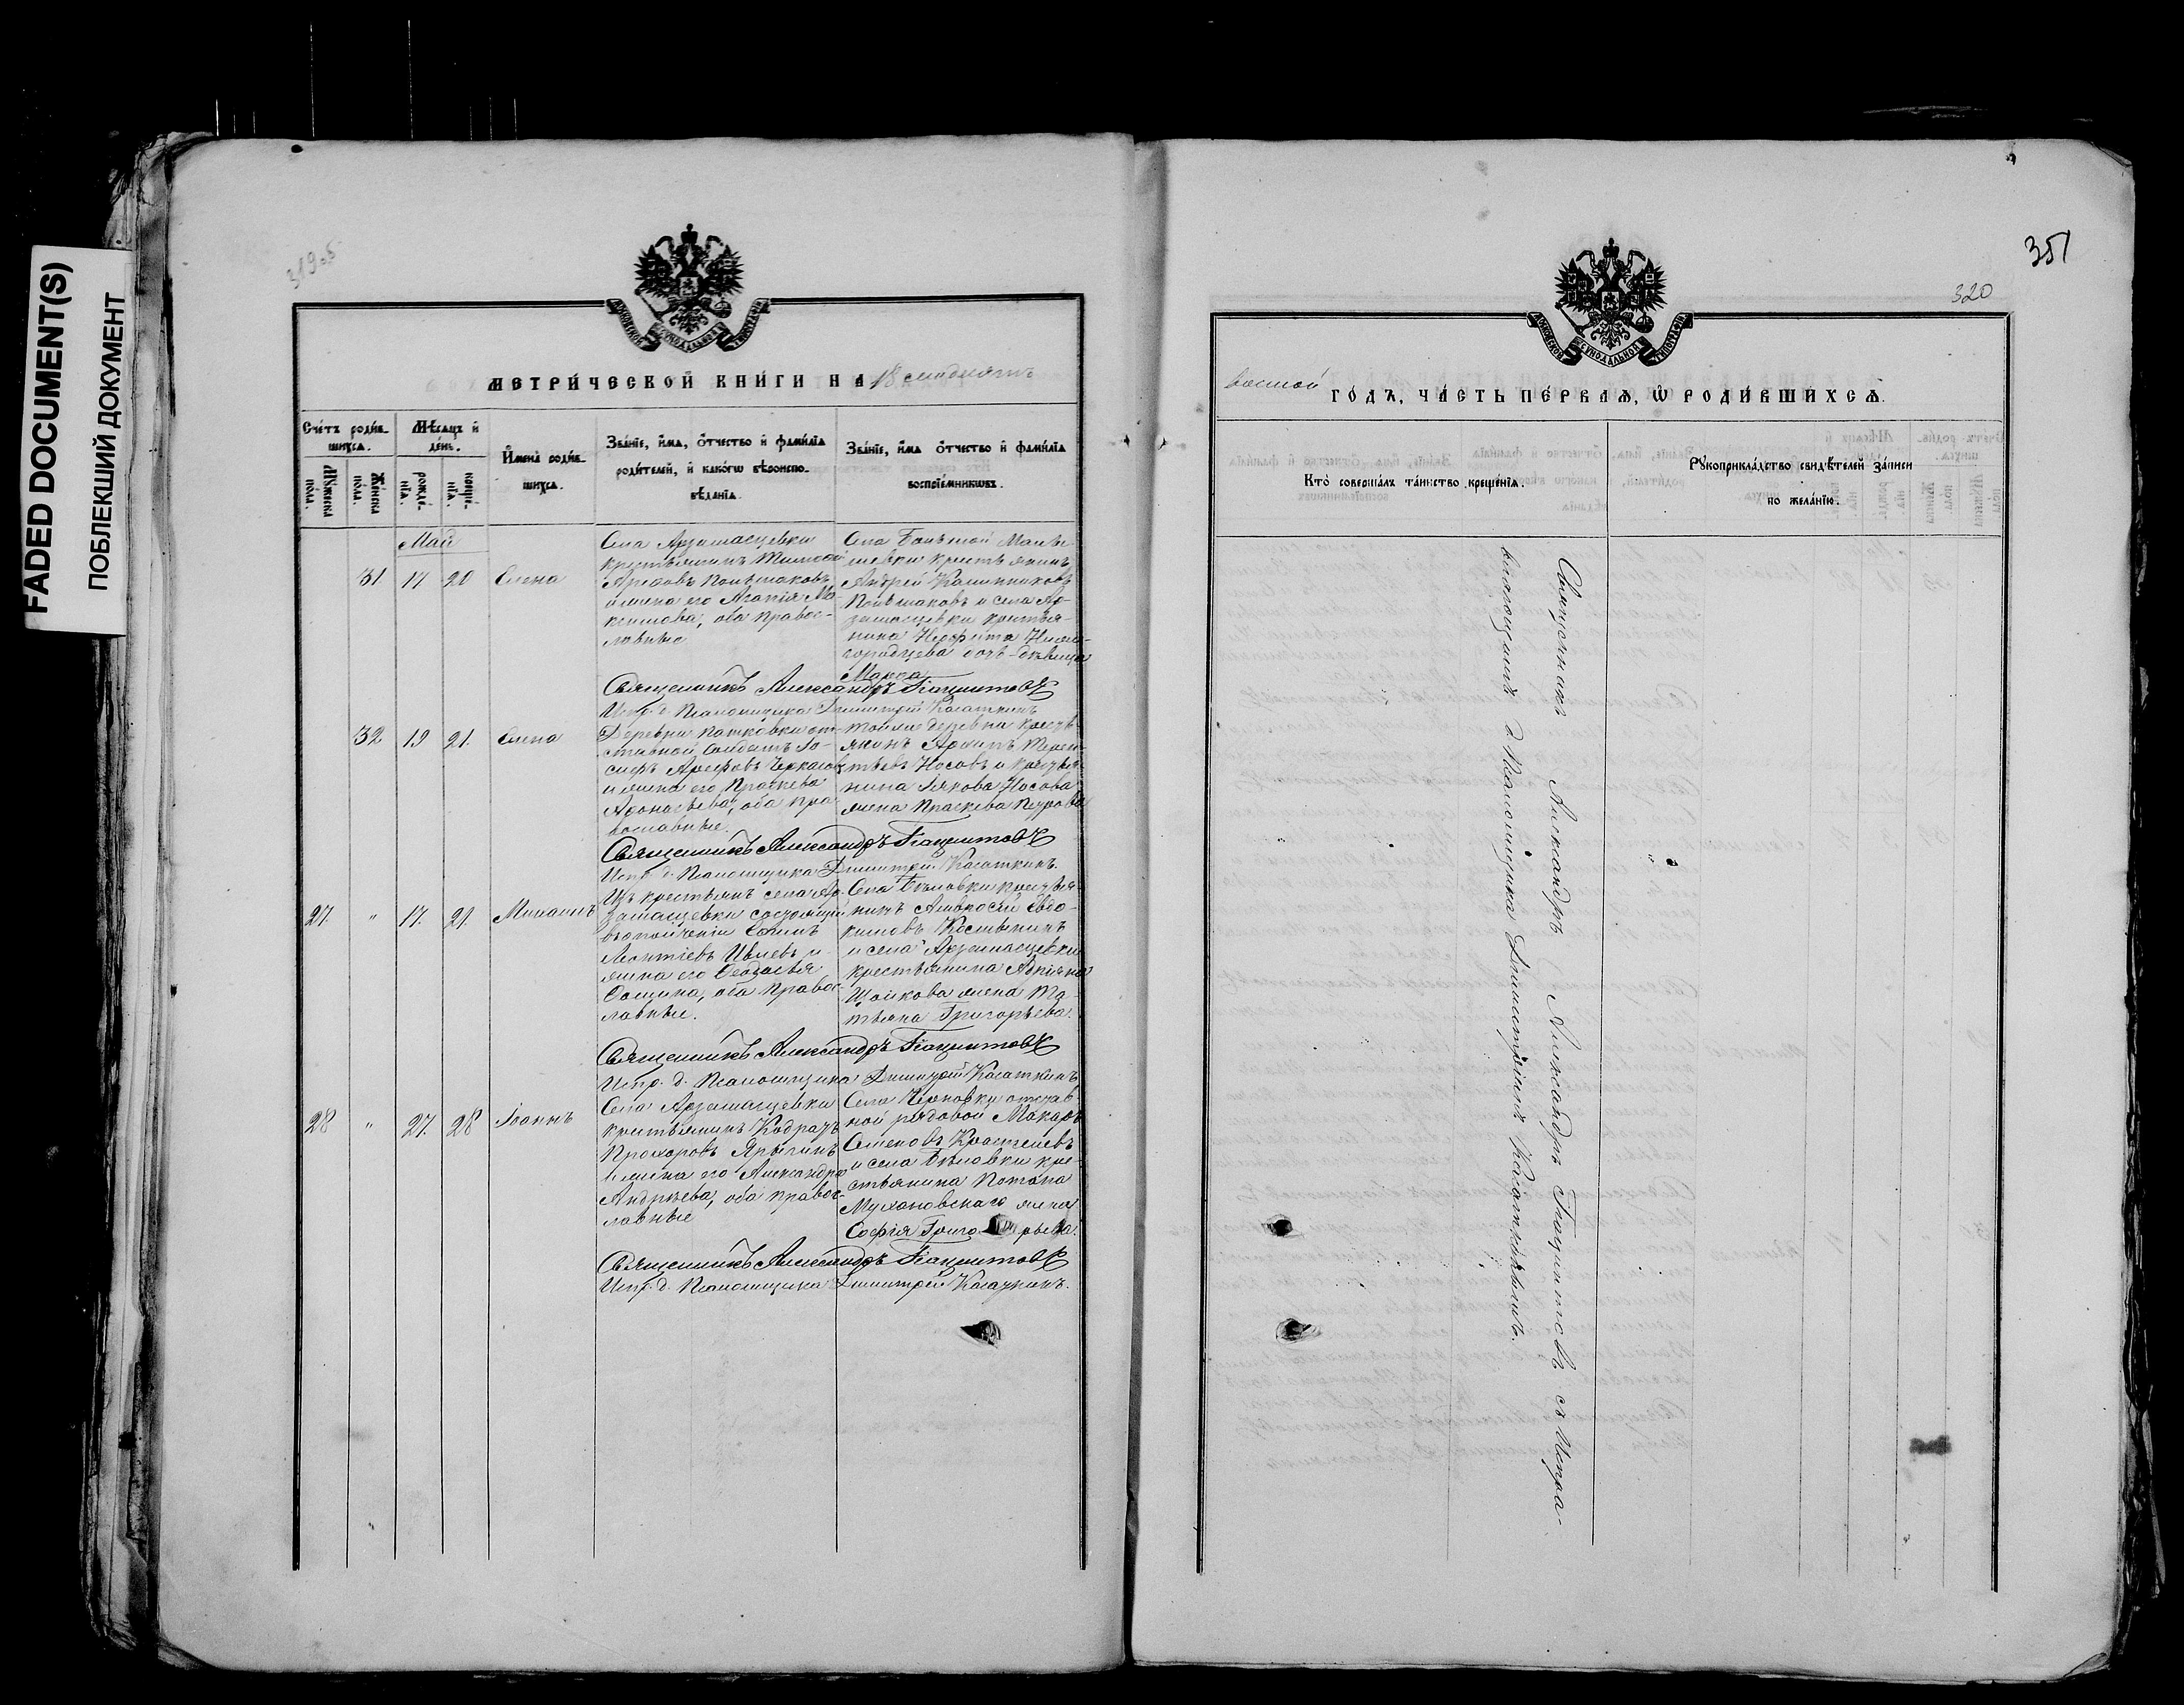 FADED DOCUMENT(S)
ПОБЛЕКШИЙ ДОКУМЕНТ
319 об
МОСКОВСКОЙ СѴНОДАЛЬНОЙ ТИПОГРАФІИ
МЕТРИЧЕСКОЙ КНИГИ НА 18 семьдесятъ
Счетъ родившихся.
Мужеска пола.
Женска пола.
Мѣсяцъ и день.
рожденія.
крещенія.
Имена родившихся.
Званіе, имя, отчество и фамилія родителей, и какого вѣроисповѣданія.
Званіе, имя отчество и фамилія воспріемниковъ.
Май
31. 17 20 Елена
Села Арзамасцевки
крестьянинъ
Арефовъ Полшаковъ
и жена его Агапія Ма-
ксимова, оба правос-
лавные
Села Большой
крестьянинъ
Андрей Калинниковъ
Полшаковъ и села Ар-
замасцевки крестья-
нина Неофита Ниже-
городцева дочь-дѣвица
Марѳа
Священникъ Александръ Гіацинтовъ
Испр. д. Псаломщика Димитрій Касаткинъ
32 19 21. Елена
Деревни от-
ставной солдатъ Іо-
сифъ Арефовъ Черкасовъ
и жена его Праскева
Аѳонасьева, оба пра-
вославные.
той же деревни кресть-
янинъ Архипъ Терен-
тьевъ Носовъ и крестья-
нина Іякова Носова
жена Праскева Петрова
Священникъ Александръ Гіацинтовъ
Испр. д. Псаломщика Димитрій Касаткинъ.
27. " 17. 21. Михаилъ
Изъ крестьянъ села Ар-
замасцевки состоящій
въ ополченіи
Леонтіевъ Ивлевъ и
жена его Ѳеодосья
Ѳомина, оба правос-
лавные.
Села Бѣловки крестья-
нинъ Амвросій Евдо-
кимовъ
и села Арзамасцевки
крестьянина Адріяна
Щойкова жена Та-
тьяна Григорьева.
Священникъ Александръ Гіацинтовъ
Испр. д. Псаломщика Димитрій Касаткинъ
28 " 27. 28 Іоаннъ
Села Арзамасцевки
крестьянинъ Кодратъ
Прохоровъ Ярыгинъ
и жена его Александра
Андреева, оба правос-
лавные
Села Черновки отстав-
ной рядовой Макаръ
Семеновъ
и села Бѣловки кре-
стьянина Потапа
Мухановскаго жена
Софія Григорьева.
Священникъ Александръ Гіацинтовъ
Испр. д. Псаломщика Димитрій Касаткинъ.
351
320
МОСКОВСКОЙ СѴНОДАЛЬНОЙ ТИПОГРАФІИ
восмой ГОДЪ, ЧАСТЬ ПЕРВАЯ, Ѡ РОДИВШИХСЯ.
Кто совершалъ таинство крещенія.
Рукоприкладство свидѣтелей записи по желанію.
Священникъ Александръ Александръ Гіацинтовъ съ Испра-
вляющимъ д. Псаломщика Димитріемъ Касаткинымъ.